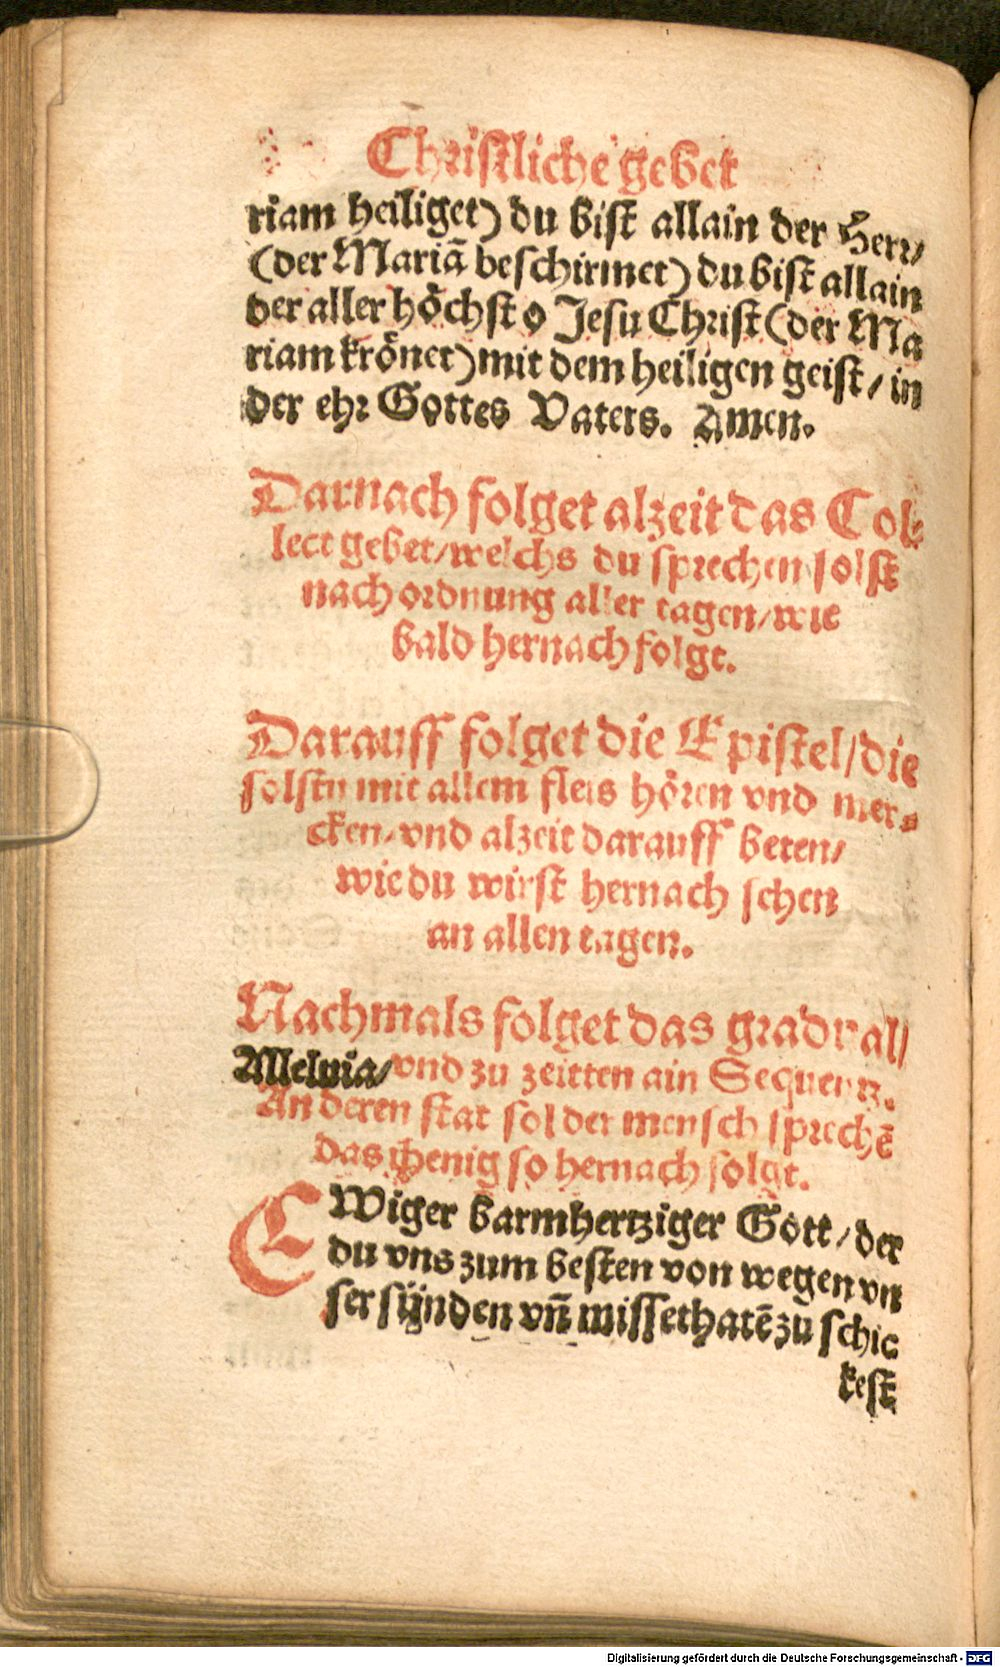 Christliche gebet
riam heiliget) du bist allain der Herr/
(der Mariã beschirmet) du bist allain
der aller höchst o Jesu Christ (der Ma
riam krönet) mit dem heiligen geist / in
der ehr Gottes Vaters. Amen.
Darnach folget alzeit das Col-
lect gebet/welchs du sprechen solst
nach ordnung aller tagen/wie
bald hernach folgt.
Darauff folget die Epistel/die
solstu mit allem fleis hören vnd mer-
cken/vnd alzeit darauff beten/
wie du wirst hernach sehen
an allen tagen.
Nachmals folget das gradval/
Alleluia/vnd zu zeitten ain Sequentz.
An deren stat sol der mensch sprechẽ
das jhenig so hernach folgt.
EWiger barmhertziger Gott / der
du vns zum besten von wegen vn
ser sünden vñ missethatẽ zu schic
kest
Digitalisierung gefördert durch die Deutsche Forschungsgemeinschaft - DFG